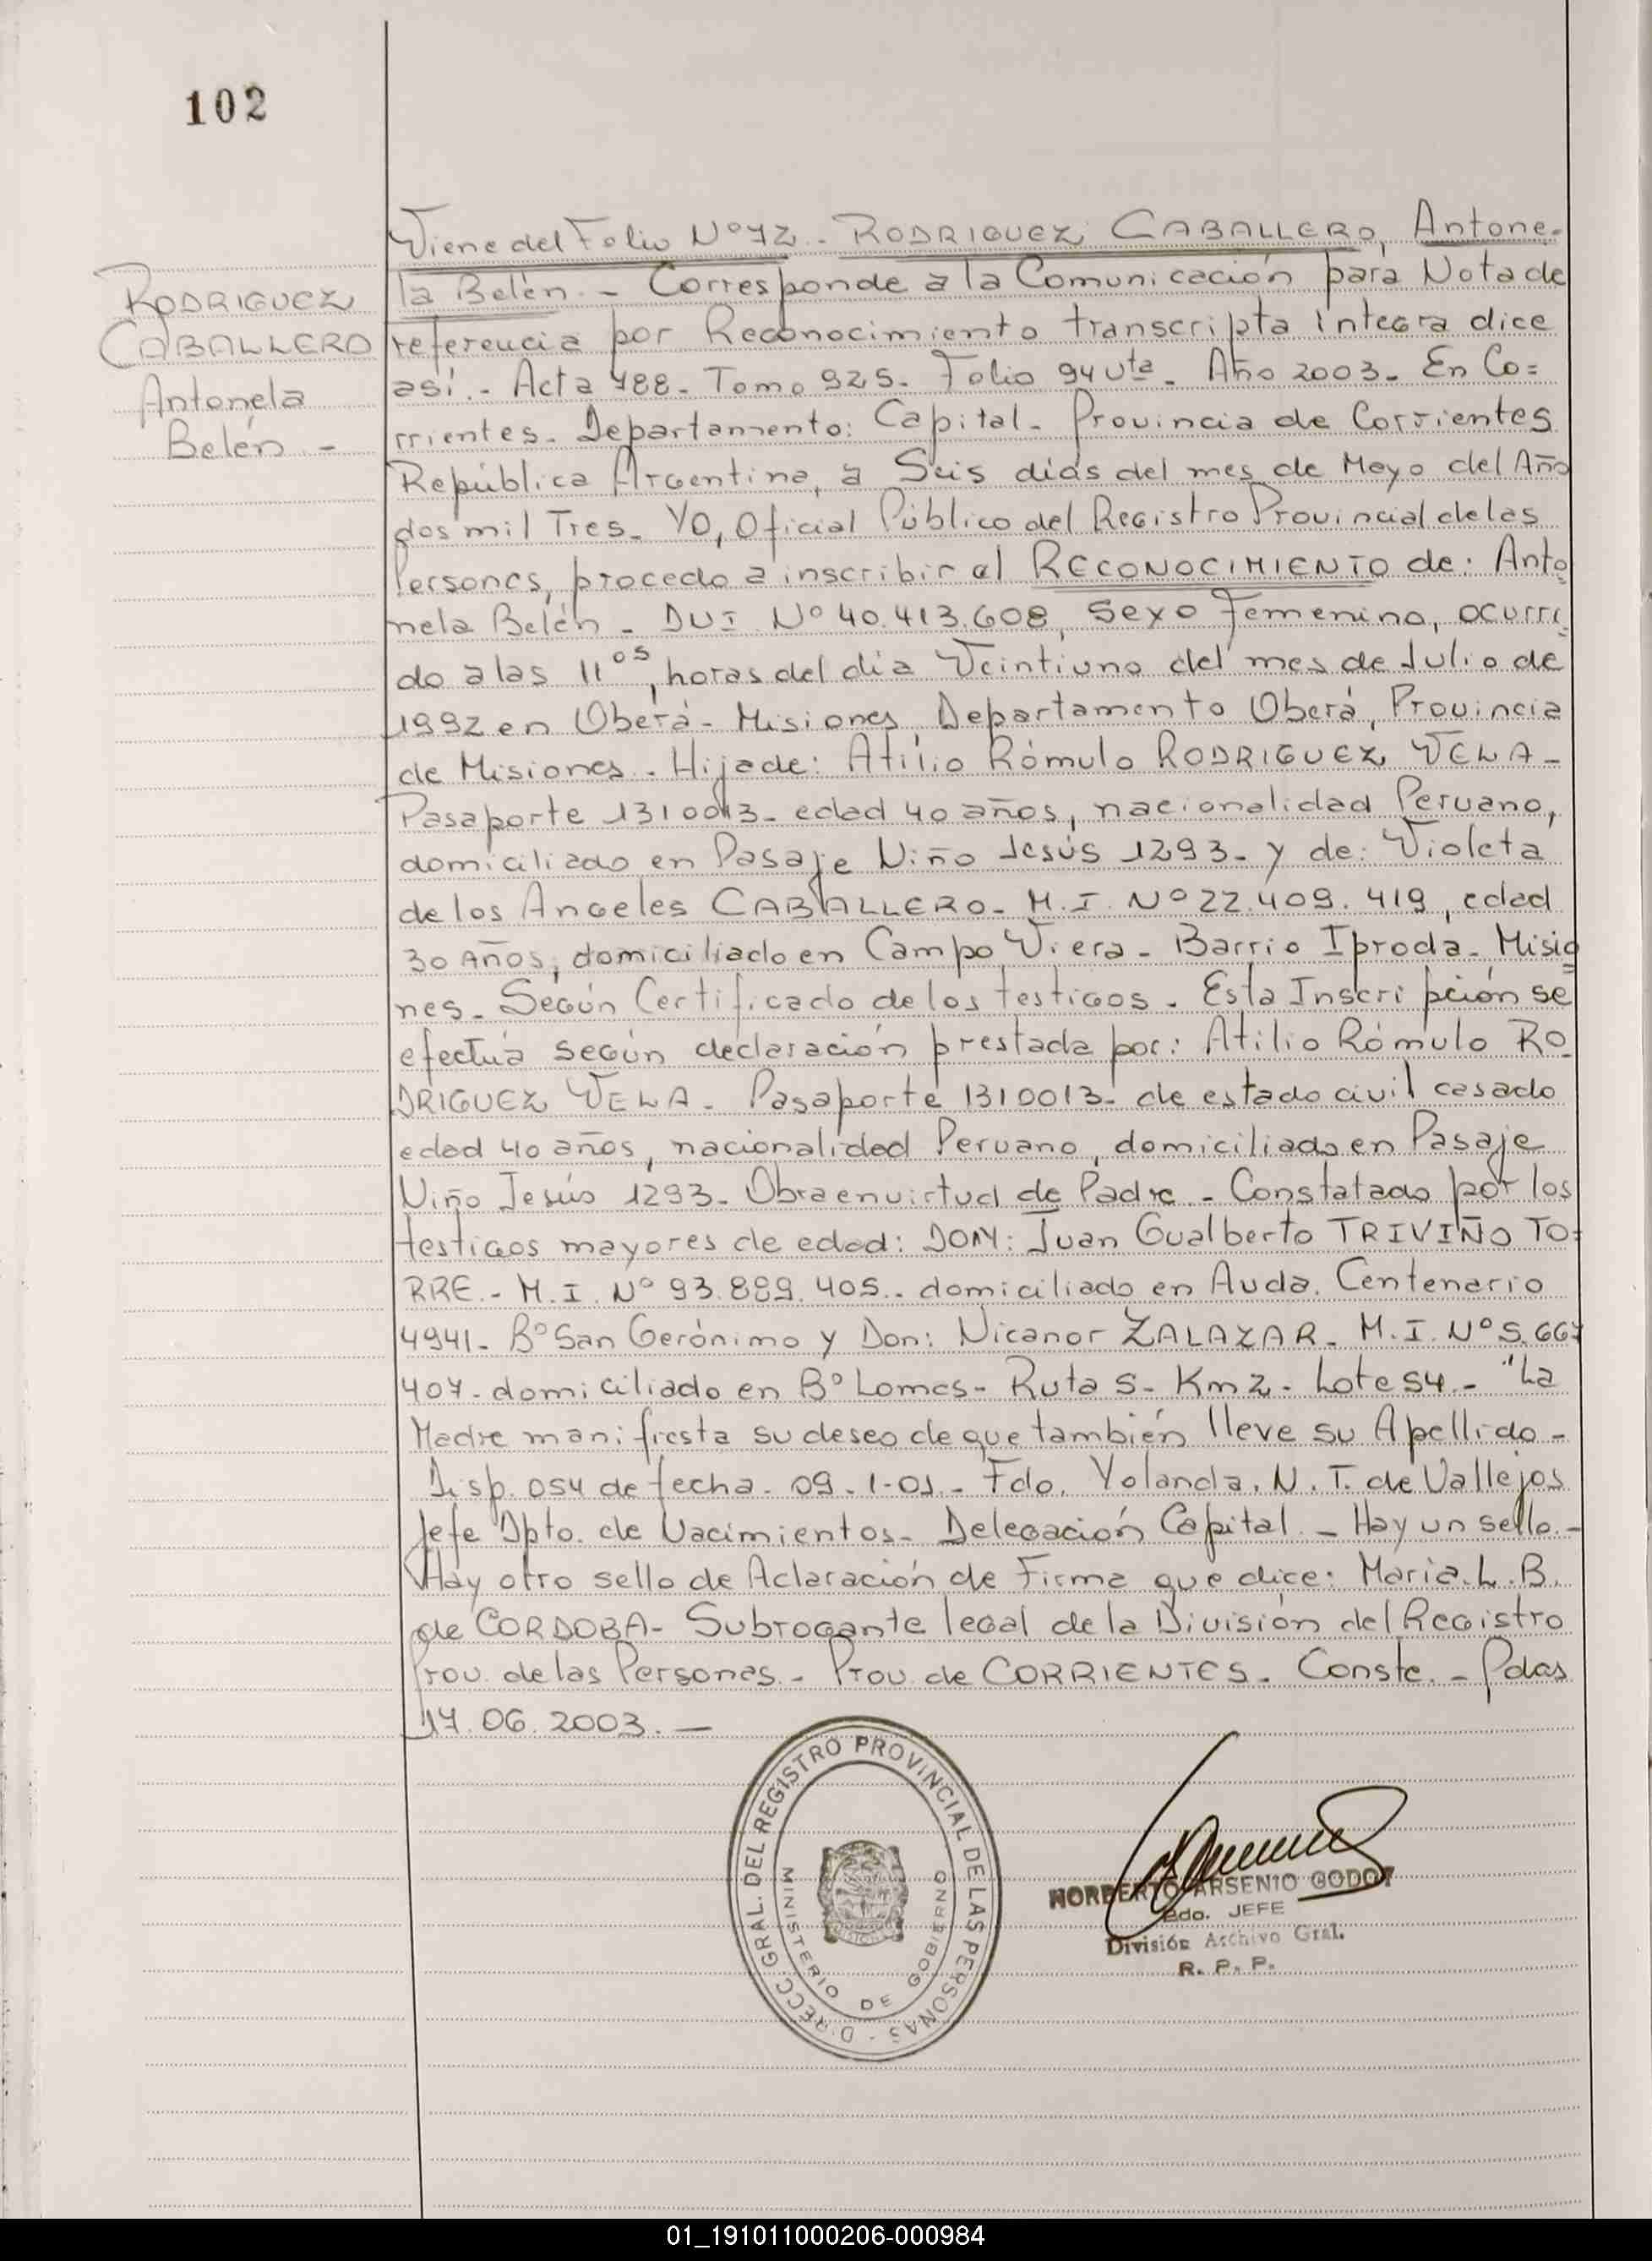 102
RODRIGUEZ
CABALLERO
Antonela
Belén -
Viene del Folio Nº 72 - RODRIGUEZ CABALLERO, Antone-
la Belén. - Corresponde a la Comunicación para Nota de
referencia por Reconocimiento transcripta íntegra dice
así. - Acta 788 - Tomo 925 - Folio 94 vta - Año 2003 - En Co=
rrientes - Departamento: Capital - Provincia de Corrientes
República Argentina, a Seis días del mes de Mayo del Año
dos mil Tres - YO, Oficial Público del Registro Provincial de las
Personas, procedo a inscribir el RECONOCIMIENTO de: Anto-
nela Belén - DUI Nº 40.413.608, sexo femenino, ocurri-
do a las 11 05, horas del día Veintiuno del mes de Julio de
1992 en Oberá - Misiones Departamento Oberá, Provincia
de Misiones. - Hija de: Atilio Rómulo RODRIGUEZ VELA -
Pasaporte 1310013 - edad 40 años, nacionalidad Peruano,
domiciliado en Pasaje Niño Jesús 1293 - y de: Violeta
de los Angeles CABALLERO - M.I. Nº 22.409.419, edad
30 Años, domiciliado en Campo Viera - Barrio Iprodá - Misio
nes - Según Certificado de los testigos - Esta Inscripción se
efectúa según declaración prestada por: Atilio Rómulo RO-
DRIGUEZ VELA - Pasaporte 1310013 - de estado civil casado
edad 40 años, nacionalidad Peruano, domiciliado en Pasaje
Niño Jesús 1293 - Obra en virtud de Padre - Constatado por los
testigos mayores de edad: DON: Juan Gualberto TRIVIÑO TO=
RRE. - M.I. Nº 93.889.405 - domiciliado en Avda. Centenario
4941 - Bº San Gerónimo y Don: Nicanor ZALAZAR - M.I. Nº 5.667
407 - domiciliado en Bº Lomas - Ruta 5 - Km 2 - Lote 54 - "La
Madre manifiesta su deseo de que también lleve su Apellido -
Disp. 054 de fecha - 09-1-01 - Fdo. Yolanda. N. T. de Vallejos
Jefe Dpto. de Nacimientos - Delegación Capital - Hay un sello. -
Hay otro sello de Aclaración de Firma que dice: María. L. B.
de CORDOBA - Subrogante legal de la División del Registro
Prov. de las Personas - Prov. de CORRIENTES - Conste. - Pdas
17.06.2003. -
DIRECC GRAL. DEL REGISTRO PROVINCIAL DE LAS PERSONAS -
MINISTERIO DE GOBIERNO
NORBERTO ARSENIO GODOY
JEFE
División Archivo Gral.
R. P. P.
01_191011000206-000984